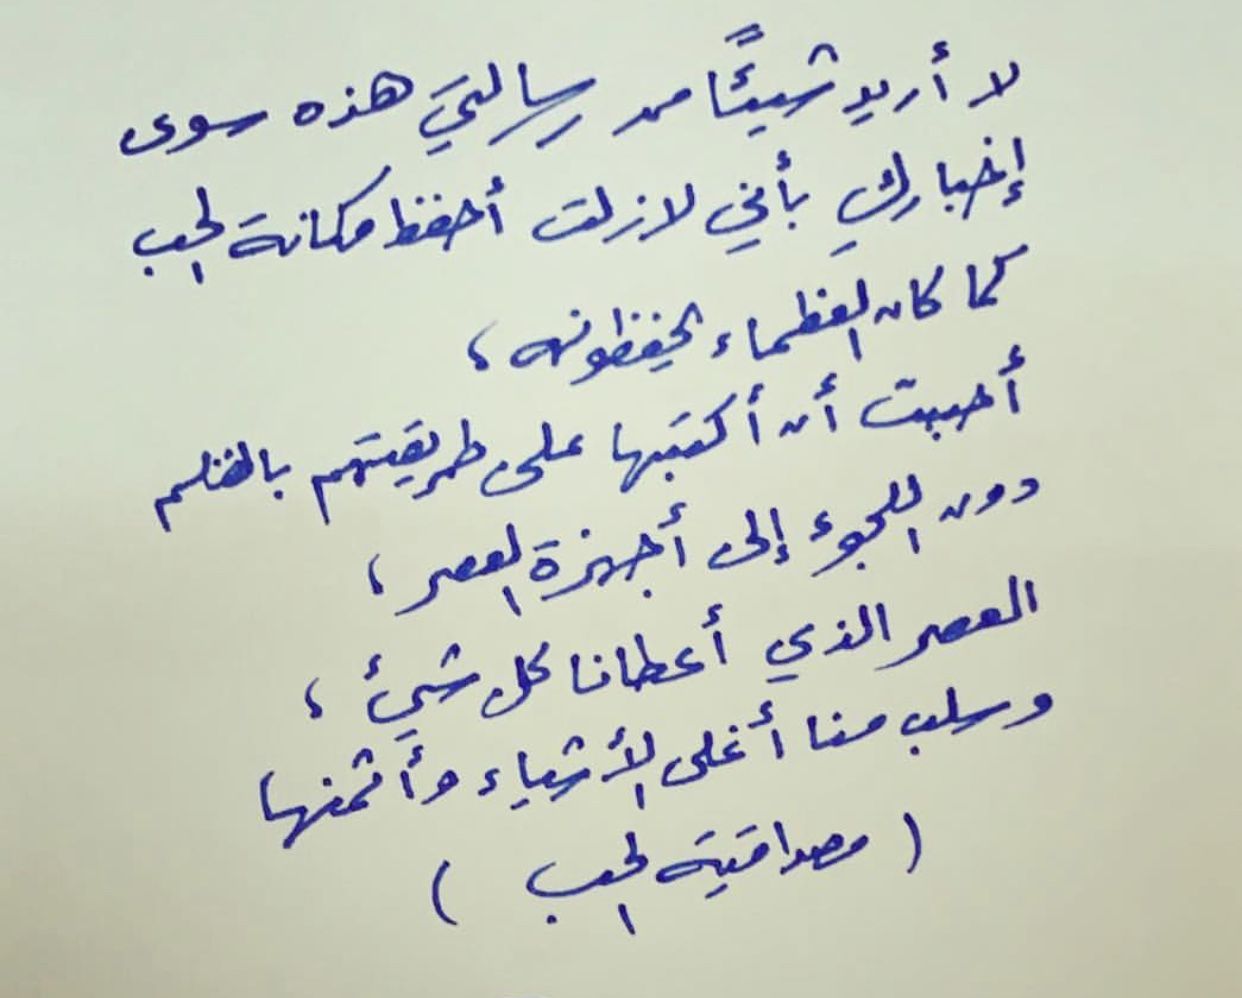 لا أريد شيئًا من رسالتي هذه سوى
إخباركِ بأني لازلت أحفظ مكانة الحب
كما كان العظماء يحفظونه ،
أحببت أن أكتبها على طريقتهم بالقلم
دون اللجوء إلى أجهزة العصر ،
العصر الذي أعطانا كل شيئ ،
وسلب منا أغلى الأشياء وأثمنها
( مصداقية الحب )